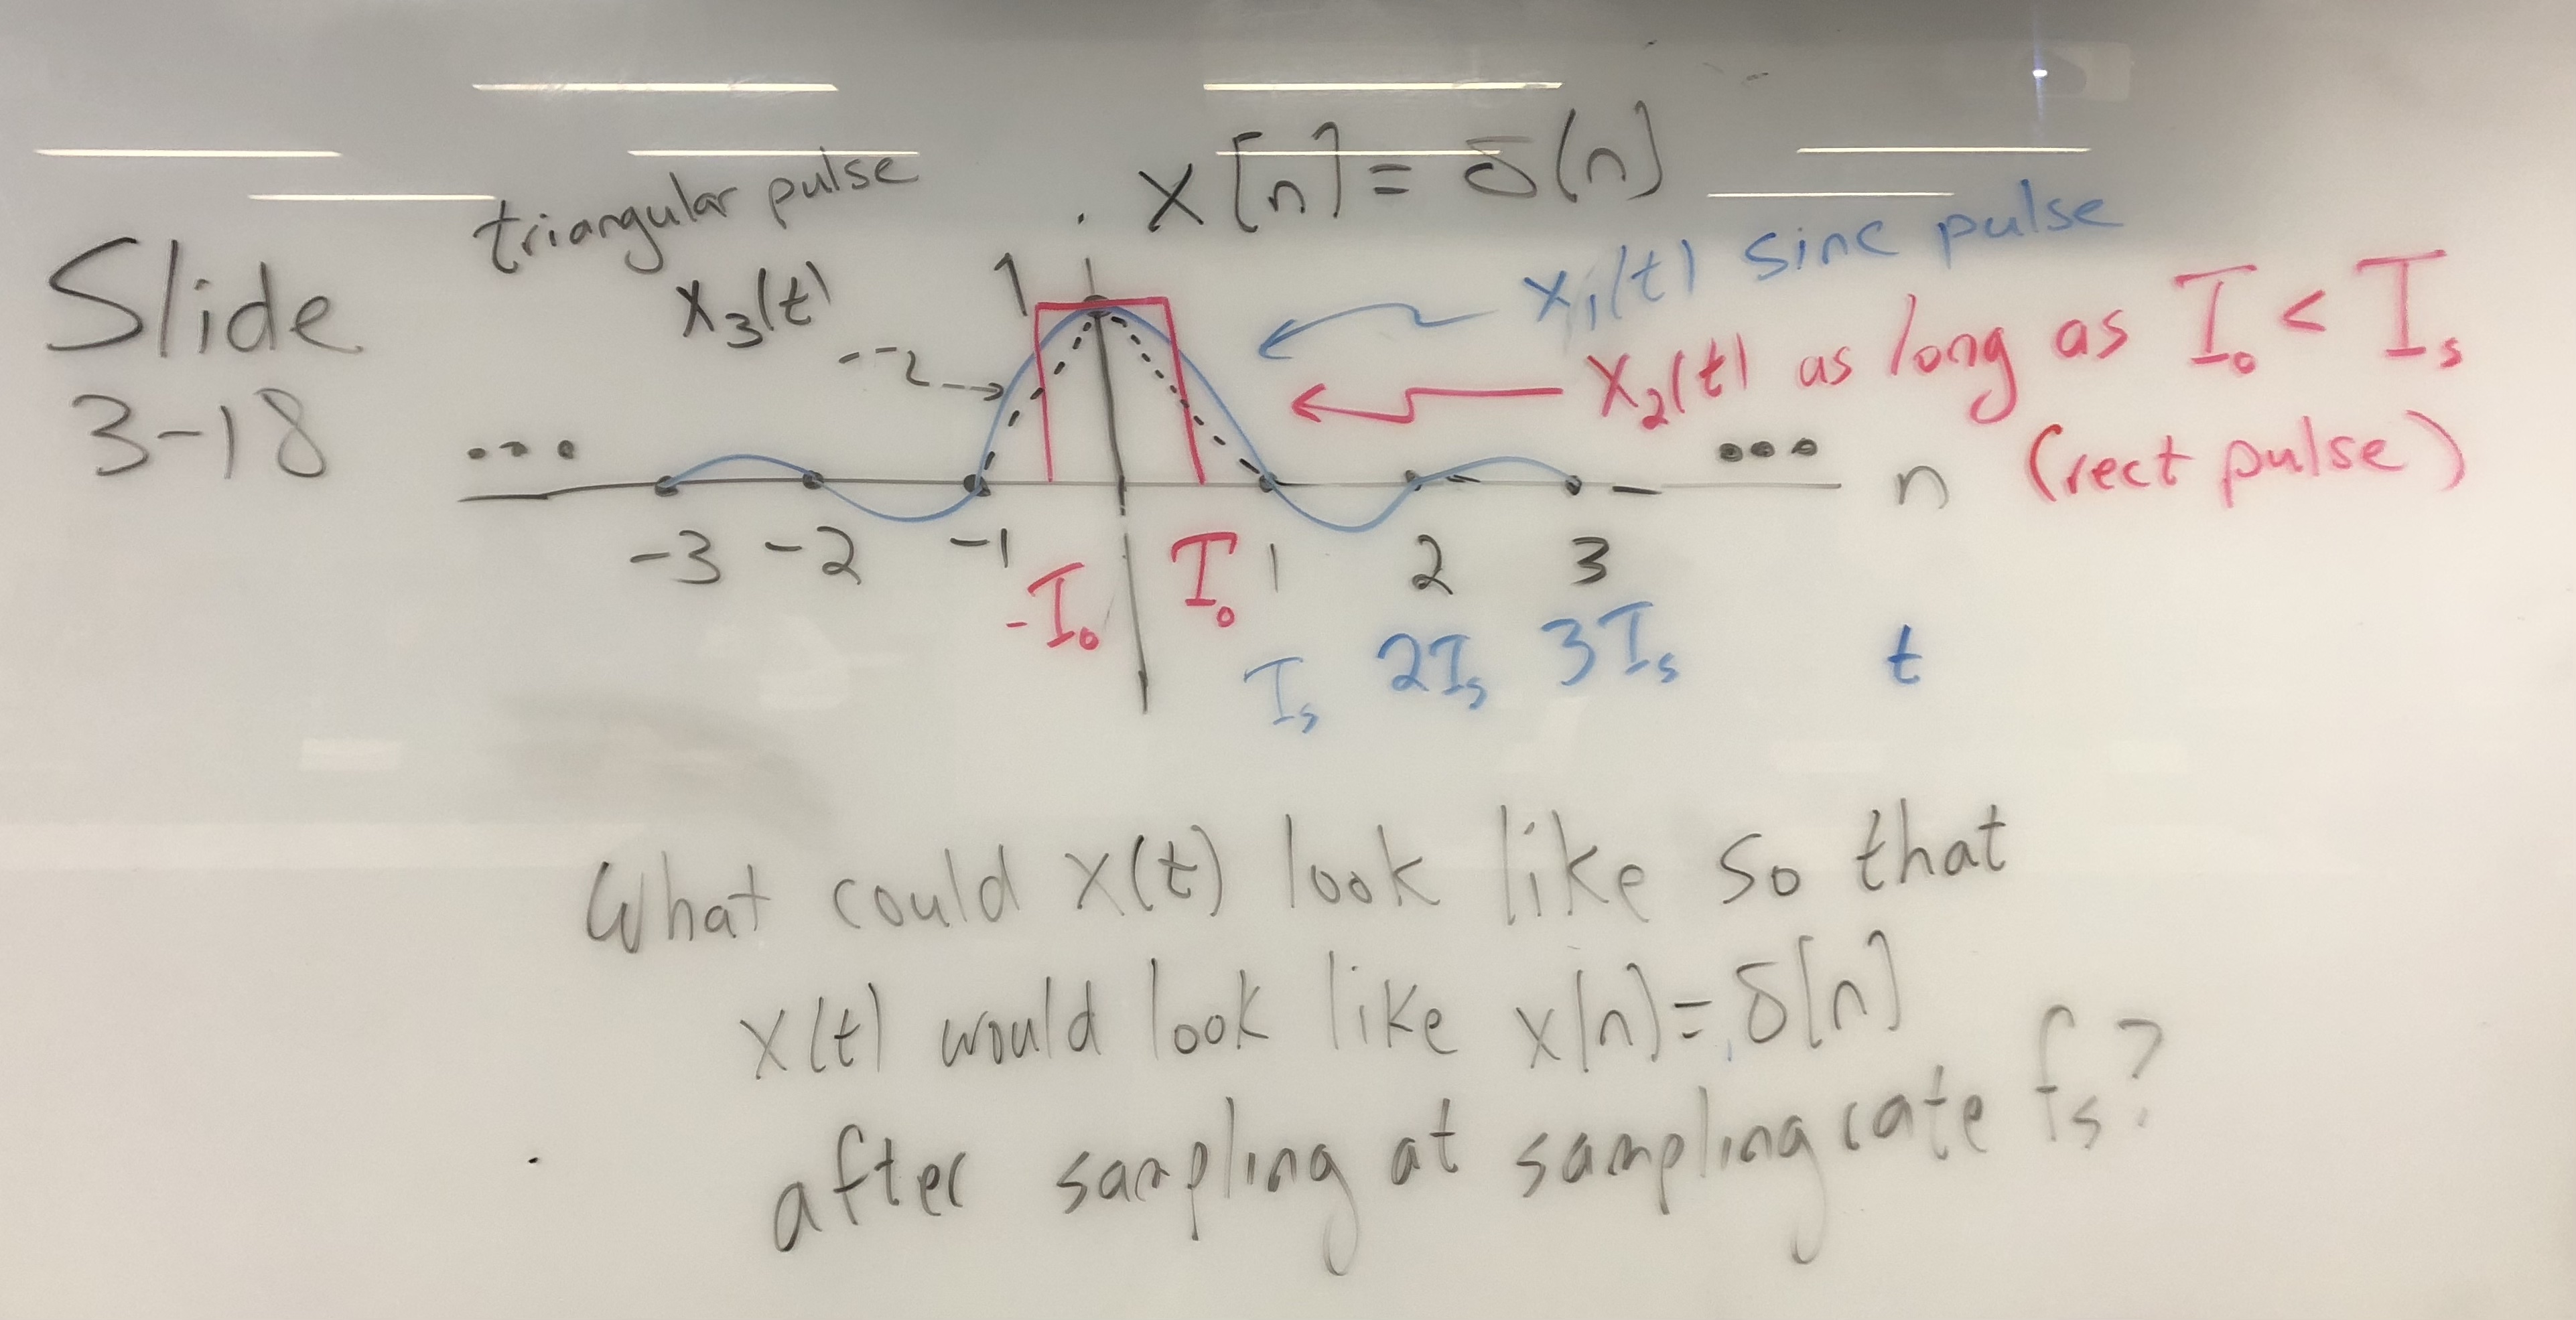 Slide
3-18
triangular pulse
x[n] = δ[n]
x₃(t)
1
x₁(t) sinc pulse
x₂(t) as long as T₀ < Tₛ
(rect pulse)
... ... n
-3 -2 -1 1 2 3
-T₀ T₀
Tₛ 2Tₛ 3Tₛ t
What could x(t) look like so that
x(t) would look like x[n] = δ[n]
after sampling at sampling rate fₛ?